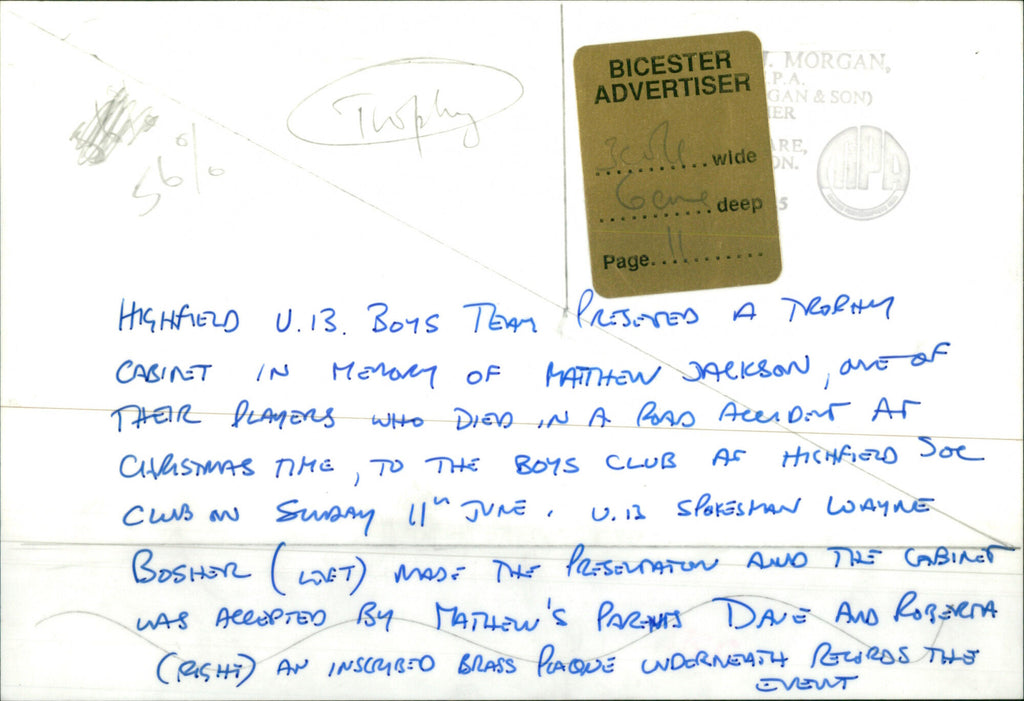 Trophy
56%
BICESTER
ADVERTISER
..........wide
6cms ..........deep
Page...11........
. MORGAN,
.P.A.
GAN & SON)
HER
ARE,
ON.
5
MPA
HIGHFIELD U.13. BOYS TEAM PRESENTED A TROPHY
CABINET IN MEMORY OF MATTHEW JACKSON, ONE OF
THEIR PLAYERS WHO DIED IN A ROAD ACCIDENT AT
CHRISTMAS TIME, TO THE BOYS CLUB AT HIGHFIELD SOC
CLUB ON SUNDAY 11TH JUNE. U.13 SPOKESMAN WAYNE
BOSHER (LEFT) MADE THE PRESENTATION AND THE CABINET
WAS ACCEPTED BY MATHEW'S PARENTS DAVE AND ROBERTA
(RIGHT) AN INSCRIBED BRASS PLAQUE UNDERNEATH RECORDS THE
EVENT